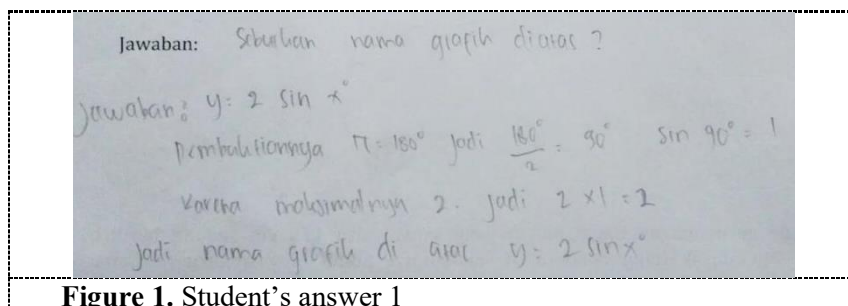 Jawaban: Sebutkan nama grafik diatas ?
Jawaban: y = 2 sin x°
Pembuktiannya π = 180° Jadi 180°/2 = 90° sin 90° = 1
Karena maksimalnya 2. Jadi 2 x 1 = 2
Jadi nama grafik di atas y = 2 sin x°
Figure 1. Student's answer 1